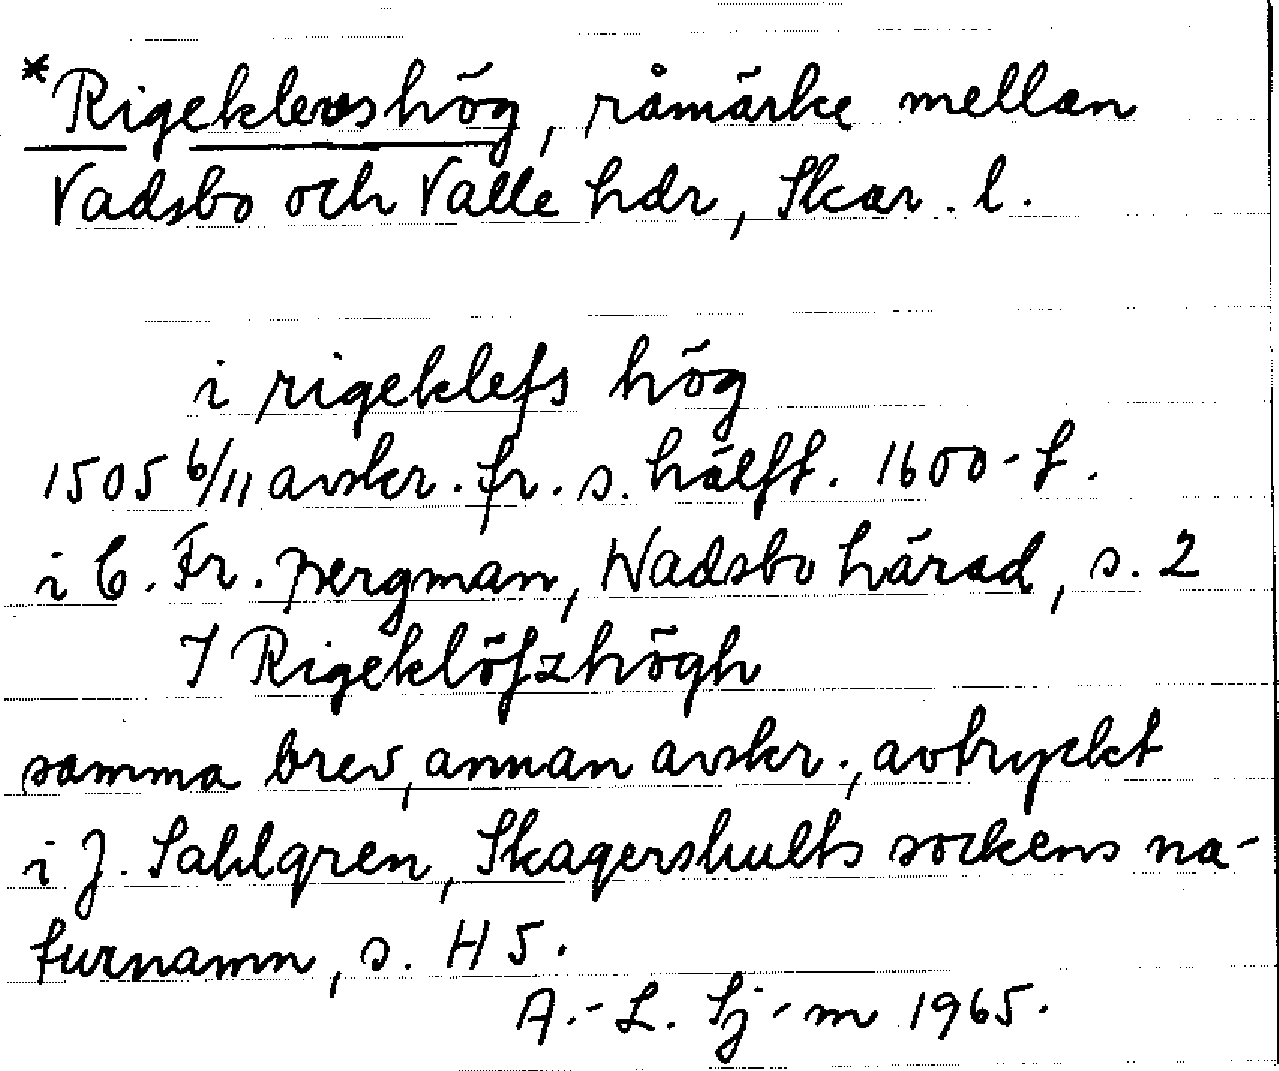 *Rigeklevshög, råmärke mellan
Vadsbo och Valle hdr, Skar. l.
i rigeklefs hög
1505 6/11 avskr. fr. s. hälft. 1600-t.
i C. Fr. Bergman, Wadsbo härad, s. 2
I Rigeklöfzhögh
samma brev, annan avskr., avtryckt
i J. Sahlgren, Skagershults sockens na-
turnamn, s. H 5.
A.-L. Sj-m 1965.